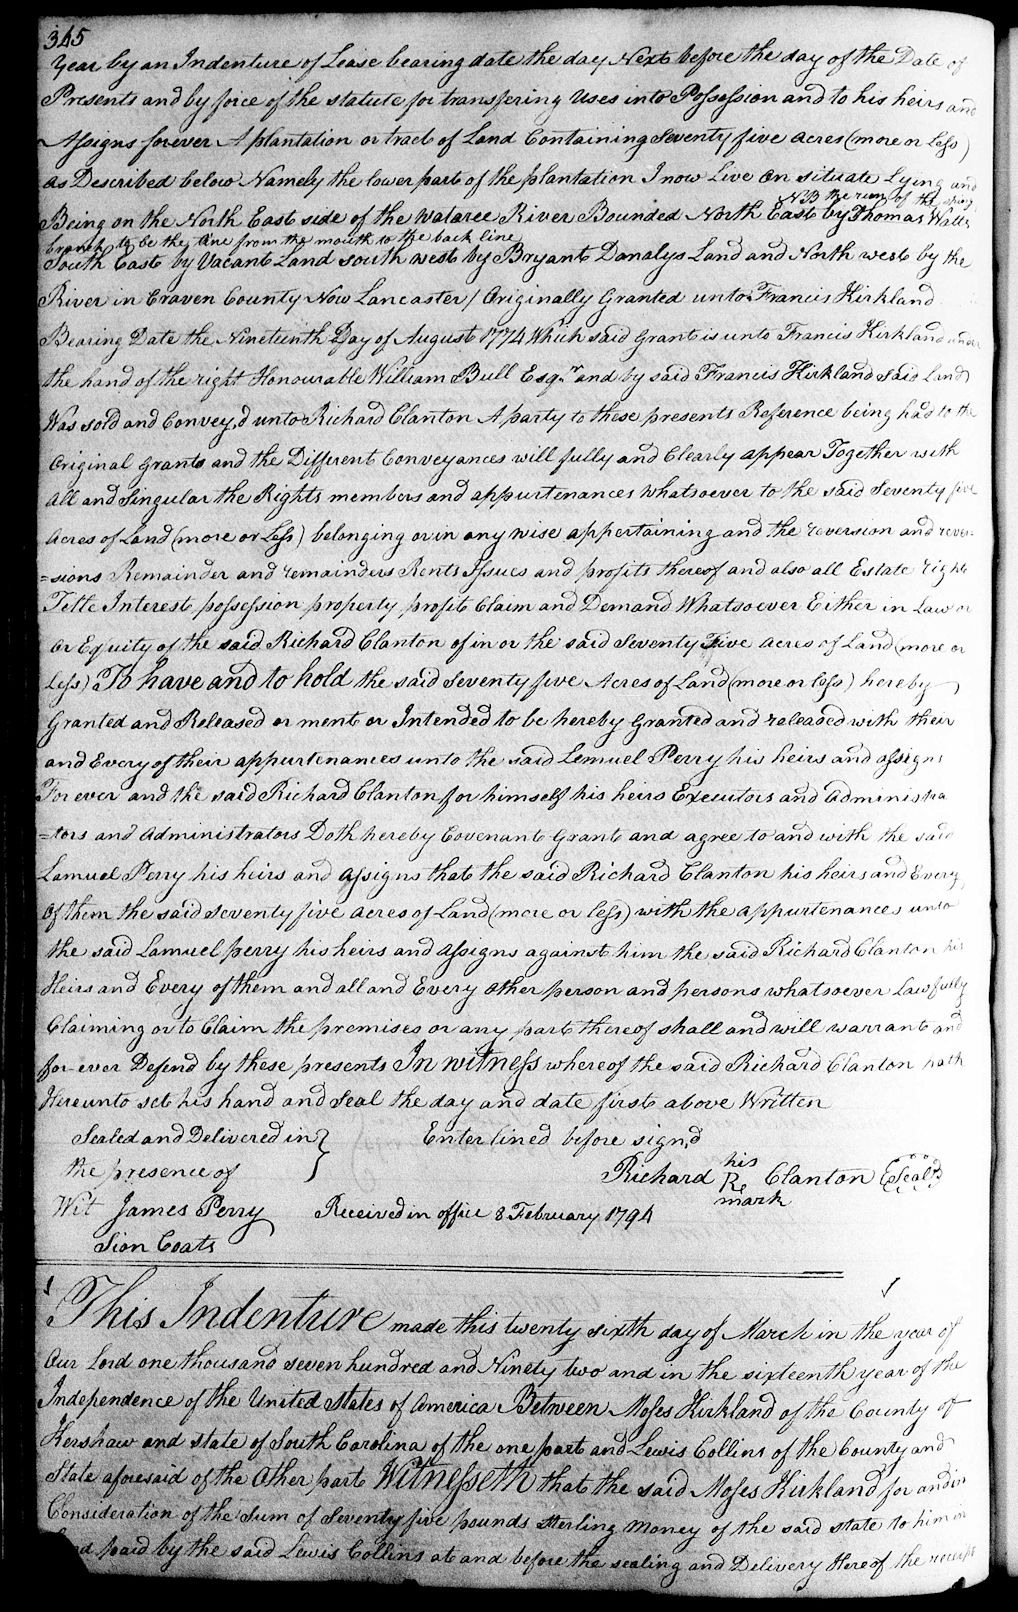 345
Year by an Indenture of Lease bearing date the day Next before the day of the Date of
Presents and by force of the statute for transfering Uses into Possession and to his heirs and
Assigns forever A plantation or tract of Land Containing Seventy five acres (more or Less)
As Described below Namely the lower part of the plantation I now Live on situate Lying and
NB the run of the spring
Being on the North East side of the Wataree River Bounded North East by Thomas Watts
branch to be the line from the mouth to the back line
South East by Vacant Land south west by Bryant Danalys Land and North west by the
River in Craven County Now Lancaster / Originally Granted unto Francis Kirkland
Bearing Date the Nineteenth Day of August 1774 Which said Grant is unto Francis Kirkland under
the hand of the right Honourable William Bull Esqr and by said Francis Kirkland Said Land
Was sold and Convey,d unto Richard Clanton A party to these presents Reference being had to the
Original Grants and the Different Conveyances will fully and Clearly appear Together with
all and Singular the Rights members and appurtenances whatsoever to the said Seventy five
acres of Land (more or Less) belonging or in any wise appertaining and the reversion and rever=
=sions Remainder and remainders Rents Issues and profits thereof and also all Estate right
Title Interest possession property profit Claim and Demand Whatsoever Either in Law or
or Equity of the said Richard Clanton of in or the said Seventy Five acres of Land (more or
Less) To have and to hold the said Seventy five Acres of Land (more or less) hereby
Granted and Released or ment or Intended to be hereby Granted and released with their
and Every of their appurtenances unto the said Lemuel Perry his heirs and assigns
For ever and the said Richard Clanton for himself his heirs Executors and Administra
=tors and administrators Doth hereby Covenant Grant and agree to and with the said
Lamuel Perry his heirs and Assigns that the said Richard Clanton his heirs and Every
of them the said seventy five acres of Land (more or less) with the appurtenances unto
the said Lamuel perry his heirs and Assigns against him the said Richard Clanton his
Heirs and Every of them and all and Every other person and persons whatsoever Lawfully
Claiming or to Claim the premises or any part thereof shall and will warrant and
for-ever Defend by these presents In witness whereof the said Richard Clanton hath
Hereunto set his hand and Seal the day and date first above Written
Sealed and Delivered in } Enterlined before sign,d
the presence of
Richard his R mark Clanton (Seal)
Wit James Perry Received in office 8 February 1794
Sion Coats
This Indenture made this twenty sixth day of March in the year of
Our Lord one thousand seven hundred and Ninety two and in the sixteenth year of the
Independence of the United States of America Between Moses Kirkland of the County of
Kershaw and state of South Carolina of the one part and Lewis Collins of the County and
State aforesaid of the Other part Witnesseth that the said Moses Kirkland for and in
Consideration of the Sum of Seventy five pounds Sterling Money of the said state to him in
paid by the said Lewis Collins at and before the sealing and Delivery Hereof the receipt